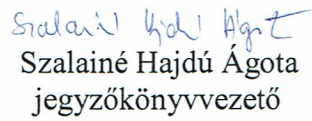 Szalainé Hajdú Ágota
Szalainé Hajdú Ágota
jegyzőkönyvvezető